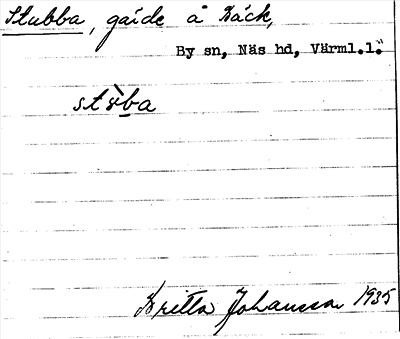 Stubba, gärde å Bäck,
By sn, Näs hd, Värml.l.
stɤ̀ba
Britta Johansson 1935